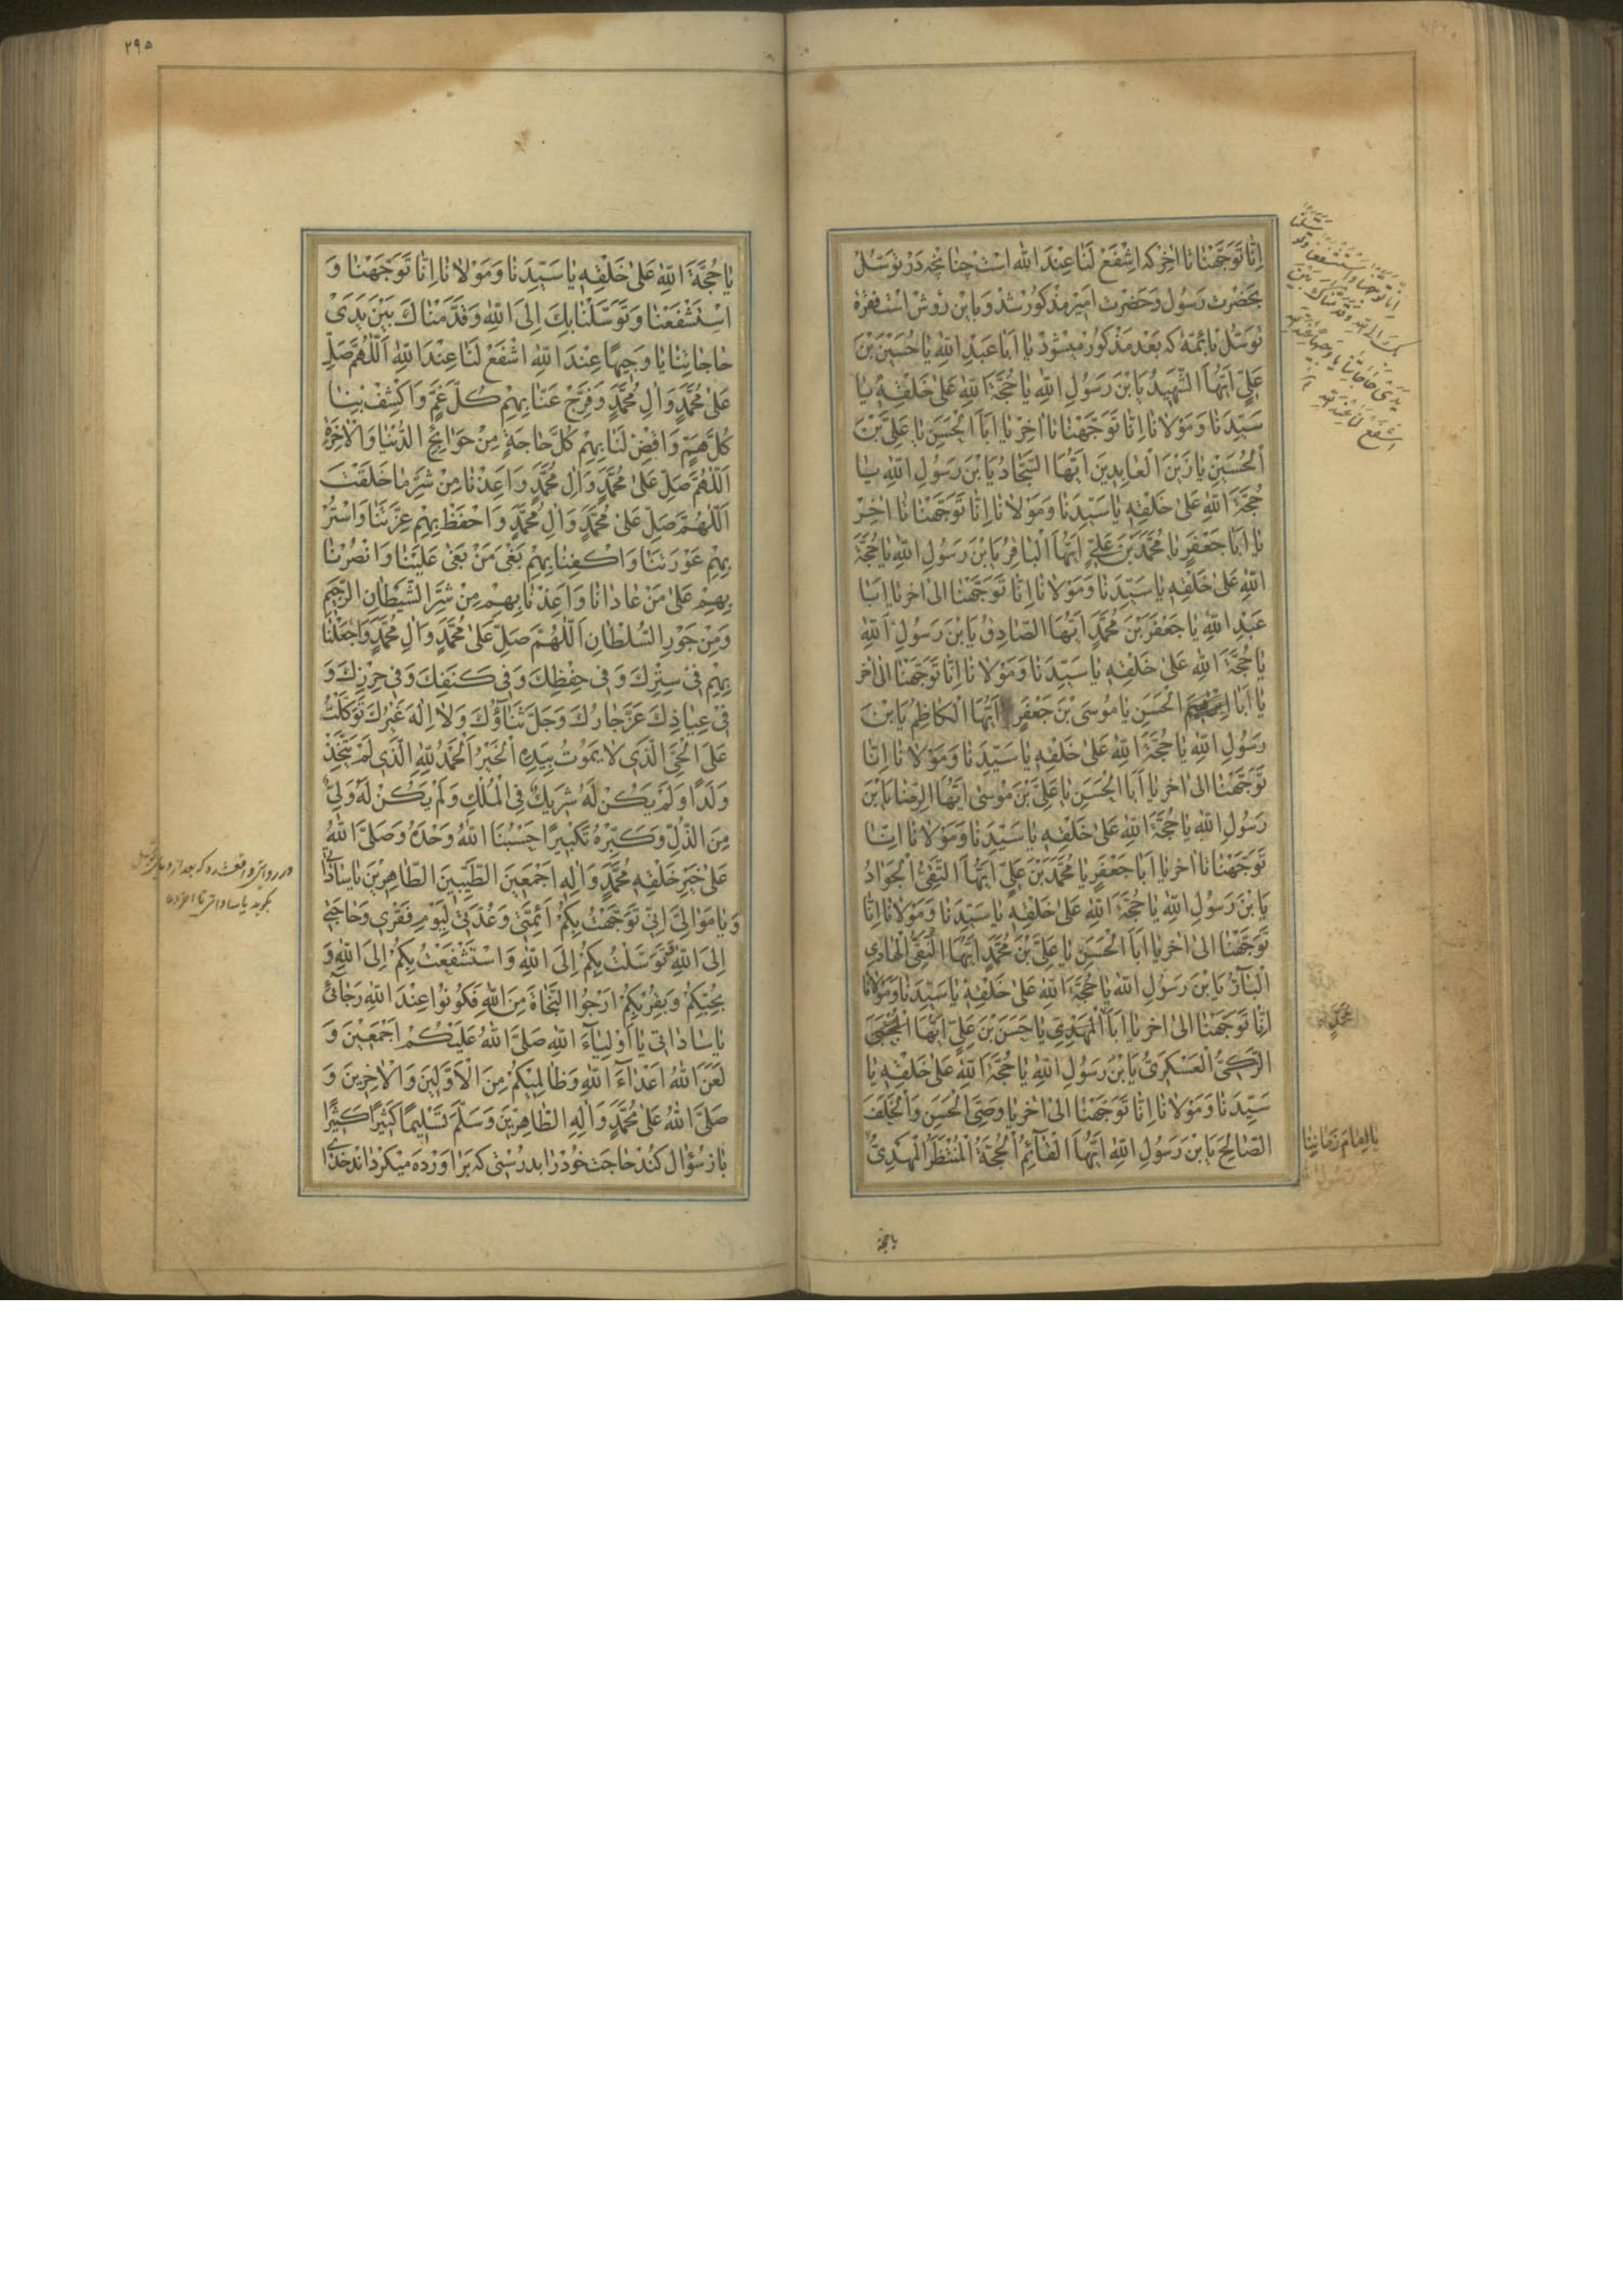 اِنّا تَوَجَّهْنا تا اخِر که اشْفَعْ لَنا عِنْدَ الله است چنانچه در توسّل
بحضرت رسول و حضرت امیر مذکور شد و باین روش است فقره
توسّل بائمّه که بعد مذکور میشود یا اَبا عَبْدِ اللهِ یا حُسَیْنَ بْنَ
عَلِیٍّ اَیُّهَا الشَّهیدُ یَا بْنَ رَسُولِ اللهِ یا حُجَّةَ اللهِ عَلی خَلْقِهِ یا
سَیِّدَنا وَمَوْلانا اِنّا تَوَجَّهْنا تا اخِر یا اَبَا الْحَسَنِ یا عَلِیَّ بْنَ
الْحُسَیْنِ یا زَیْنَ الْعابِدینَ اَیُّهَا السَّجّادُ یَا بْنَ رَسُولِ اللهِ یا
حُجَّةَ اللهِ عَلی خَلْقِهِ یا سَیِّدَنا وَمَوْلانا اِنّا تَوَجَّهْنا تا اخِر
یا اَبا جَعْفَرٍ یا مُحَمَّدَ بْنَ عَلِیٍّ اَیُّهَا الْباقِرُ یَا بْنَ رَسُولِ اللهِ یا حُجَّةَ
اللهِ عَلی خَلْقِهِ یا سَیِّدَنا وَمَوْلانا اِنّا تَوَجَّهْنا الی اخر یا اَبا
عَبْدِ اللهِ یا جَعْفَرَ بْنَ مُحَمَّدٍ اَیُّهَا الصّادِقُ یَا بْنَ رَسُولِ اللهِ
یا حُجَّةَ اللهِ عَلی خَلْقِهِ یا سَیِّدَنا وَمَوْلانا اِنّا تَوَجَّهْنا الی اخر
یا اَبَا الْحَسَنِ یا مُوسَی بْنَ جَعْفَرٍ اَیُّهَا الْکاظِمُ یَا بْنَ
رَسُولِ اللهِ یا حُجَّةَ اللهِ عَلی خَلْقِهِ یا سَیِّدَنا وَمَوْلانا اِنّا
تَوَجَّهْنا الی اخر یا اَبَا الْحَسَنِ یا عَلِیَّ بْنَ مُوسی اَیُّهَا الرِّضا یَا بْنَ
رَسُولِ اللهِ یا حُجَّةَ اللهِ عَلی خَلْقِهِ یا سَیِّدَنا وَمَوْلانا اِنّا
تَوَجَّهْنا تا اخر یا اَبا جَعْفَرٍ یا مُحَمَّدَ بْنَ عَلِیٍّ اَیُّهَا التَّقِیُّ الْجَوادُ
یَا بْنَ رَسُولِ اللهِ یا حُجَّةَ اللهِ عَلی خَلْقِهِ یا سَیِّدَنا وَمَوْلانا اِنّا
تَوَجَّهْنا الی اخر یا اَبَا الْحَسَنِ یا عَلِیَّ بْنَ مُحَمَّدٍ اَیُّهَا النَّقِیُّ الْهادِی
الْبارُّ یَا بْنَ رَسُولِ اللهِ یا حُجَّةَ اللهِ عَلی خَلْقِهِ یا سَیِّدَنا وَمَوْلانا
اِنّا تَوَجَّهْنا الی اخر یا اَبَا الْمَهْدِی یا حَسَنَ بْنَ عَلِیٍّ اَیُّهَا الْمُجْتَبی
الزَّکِیُّ الْعَسْکَرِیُّ یَا بْنَ رَسُولِ اللهِ یا حُجَّةَ اللهِ عَلی خَلْقِهِ یا
سَیِّدَنا وَمَوْلانا اِنّا تَوَجَّهْنا الی اخر یا وَصِیَّ الْحَسَنِ وَالْخَلَفَ
الصّالِحَ یَا بْنَ رَسُولِ اللهِ اَیُّهَا الْقآئِمُ الْحُجَّةُ الْمُنْتَظَرُ الْمَهْدِیُّ
یا حجّة
اِنّا تَوَجَّهْنا وَاسْتَشْفَعْنا وَتَوَسَّلْنا
بِكَ اِلَی اللهِ وَقَدَّمْناكَ بَیْنَ
یَدَیْ حاجاتِنا یا وَجیهاً عِنْدَ اللهِ
اِشْفَعْ لَنا عِنْدَ اللهِ
یا اِمامَ زَمانِنا
۲۹۵
یا حُجَّةَ اللهِ عَلی خَلْقِهِ یا سَیِّدَنا وَمَوْلانا اِنّا تَوَجَّهْنا وَ
اسْتَشْفَعْنا وَتَوَسَّلْنا بِكَ اِلَی اللهِ وَقَدَّمْناكَ بَیْنَ یَدَیْ
حاجاتِنا یا وَجیهاً عِنْدَ اللهِ اشْفَعْ لَنا عِنْدَ اللهِ اَللّهُمَّ صَلِّ
عَلی مُحَمَّدٍ وَالِ مُحَمَّدٍ وَفَرِّجْ عَنّا بِهِمْ کُلَّ غَمٍّ وَاکْشِفْ بِنا
کُلَّ هَمٍّ وَاقْضِ لَنا بِهِمْ کُلَّ حاجَةٍ مِنْ حَوائِجِ الدُّنْیا وَالْاخِرَةِ
اَللّهُمَّ صَلِّ عَلی مُحَمَّدٍ وَالِ مُحَمَّدٍ وَاَعِذْنا مِنْ شَرِّ ما خَلَقْتَ
اَللّهُمَّ صَلِّ عَلی مُحَمَّدٍ وَالِ مُحَمَّدٍ وَاحْفَظْ بِهِمْ عِزَّتَنا وَاسْتُرْ
بِهِمْ عَوْرَتَنا وَاکْفِنا بِهِمْ بَغْیَ مَنْ بَغی عَلَیْنا وَانْصُرْنا
بِهِمْ عَلی مَنْ عادانا وَاَعِذْنا بِهِمْ مِنْ شَرِّ الشَّیْطانِ الرَّجیمِ
وَمِنْ جَوْرِ السُّلْطانِ اَللّهُمَّ صَلِّ عَلی مُحَمَّدٍ وَالِ مُحَمَّدٍ وَاجْعَلْنا
بِهِمْ فی سِتْرِكَ وَفی حِفْظِكَ وَفی کَنَفِكَ وَفی حِرْزِكَ وَ
فی عِیاذِكَ عَزَّ جارُكَ وَجَلَّ ثَناؤُكَ وَلا اِلهَ غَیْرُكَ تَوَکَّلْتُ
عَلَی الْحَیِّ الَّذی لا یَمُوتُ بِیَدِهِ الْخَیْرُ اَلْحَمْدُ لِلّهِ الَّذی لَمْ یَتَّخِذْ
وَلَداً وَلَمْ یَکُنْ لَهُ شَریكٌ فِی الْمُلْكِ وَلَمْ یَکُنْ لَهُ وَلِیٌّ
مِنَ الذُّلِّ وَکَبِّرْهُ تَکْبیراً حَسْبُنَا اللهُ وَحْدَهُ وَصَلَّی اللهُ
عَلی خَیْرِ خَلْقِهِ مُحَمَّدٍ وَالِهِ اَجْمَعینَ الطَّیِّبینَ الطّاهِرینَ یا ساداتی
وَیا مَوالِیَّ اِنّی تَوَجَّهْتُ بِکُمْ اَئِمَّتی وَعُدَّتی لِیَوْمِ فَقْری وَحاجَتی
اِلَی اللهِ وَتَوَسَّلْتُ بِکُمْ اِلَی اللهِ وَاسْتَشْفَعْتُ بِکُمْ اِلَی اللهِ وَ
بِحُبِّکُمْ وَبِقُرْبِکُمْ اَرْجُوا النَّجاةَ مِنَ اللهِ فَکُونُوا عِنْدَ اللهِ رَجآئی
یا ساداتی یا اَوْلِیآءَ اللهِ صَلَّی اللهُ عَلَیْکُمْ اَجْمَعینَ وَ
لَعَنَ اللهُ اَعْدآءَ اللهِ وَظالِمیکُمْ مِنَ الْاَوَّلینَ وَالْاخِرینَ وَ
صَلَّی اللهُ عَلی مُحَمَّدٍ وَالِهِ الطّاهِرینَ وَسَلَّمَ تَسْلیماً کَثیراً کَثیراً
باز سؤال کند حاجت خود را بدرستی که براورده میکرداند خدا
در روایتی واقع شده که بعد از دعای توسل
بگوید یا ساداتی تا اخر دعا